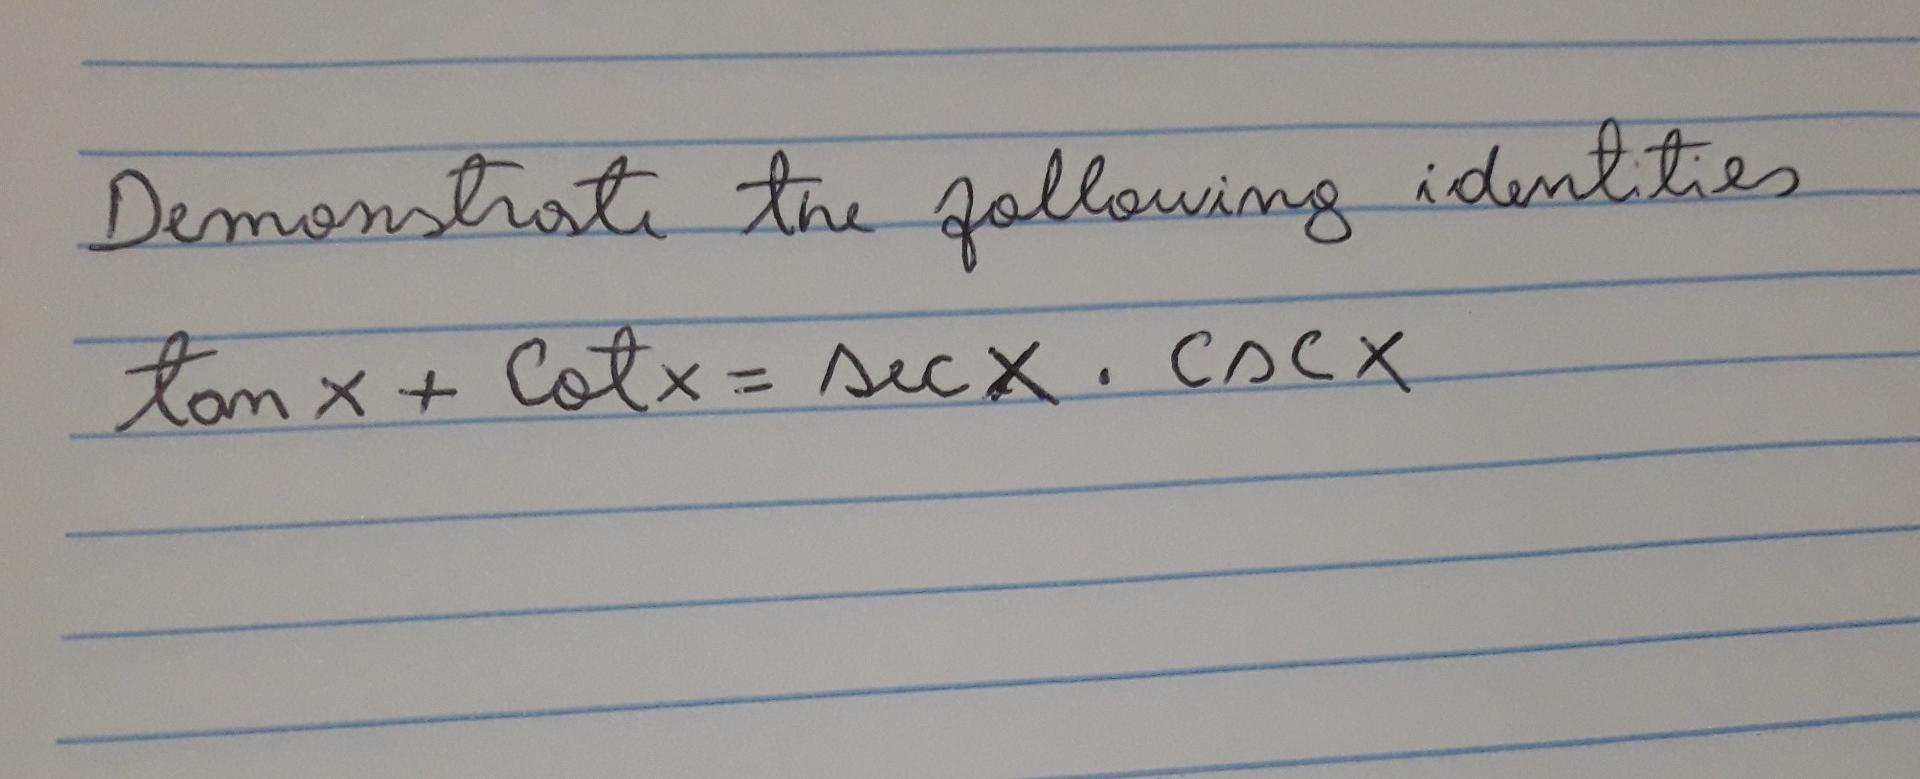 Demonstrate the following identities
tan x + Cotx = sec x . csc x